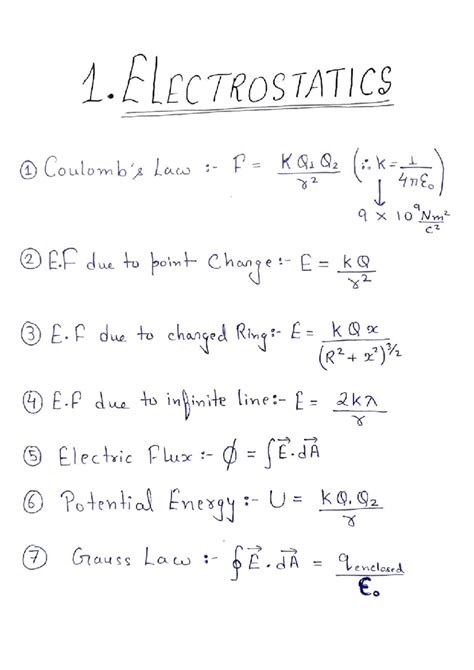 1. ELECTROSTATICS
① Coulomb's Law :- F = KQ₁Q₂/r² (∴ k = 1/4πε₀)
↓
9 × 10⁹ Nm²/C²
② E.F due to point Change :- E = kQ/r²
③ E.F due to changed Ring :- E = kQx/(R² + x²)^3/2
④ E.F due to infinite line :- E = 2kλ/r
⑤ Electric Flux :- ϕ = ∫E⃗.dA⃗
⑥ Potential Energy :- U = kQ₁Q₂/r
⑦ Gauss Law :- ∮E⃗.dA⃗ = q enclosed/ε₀